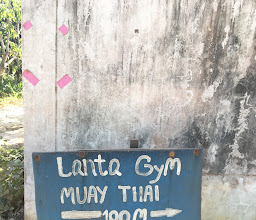 Lanta Gym
MUAY THAI
100M